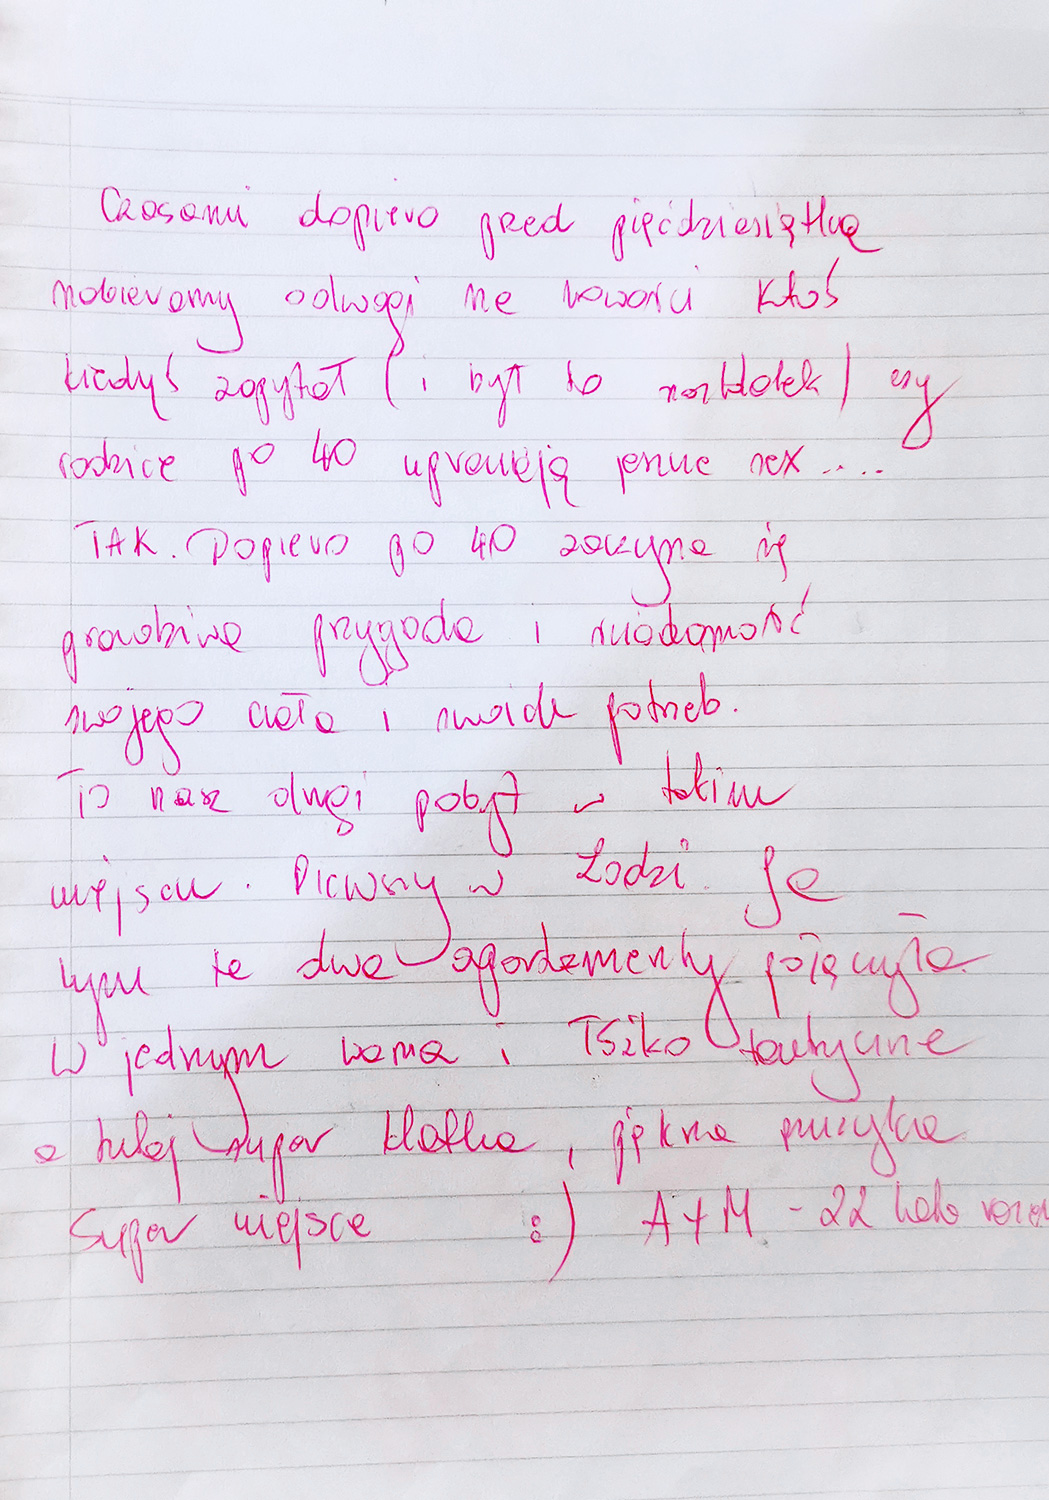 Czasami dopiero przed pięćdziesiątką
nabieramy odwagi na nowości Ktoś
kiedyś zapytał (i był to nastolatek) czy
rodzice po 40 uprawiają jeszcze sex ....
TAK. Dopiero po 40 zaczyna się
prawdziwa przygoda i świadomość
swojego ciała i swoich potrzeb.
To nasz drugi pobyt w takim
miejscu. Pierwszy w Łodzi. Ja
bym te dwa apartamenty połączyła.
W jednym wanna i łóżko tantryczne
a tutaj super klatka, piękna muzyka
Super miejsce :) A+M - 22 lata razem